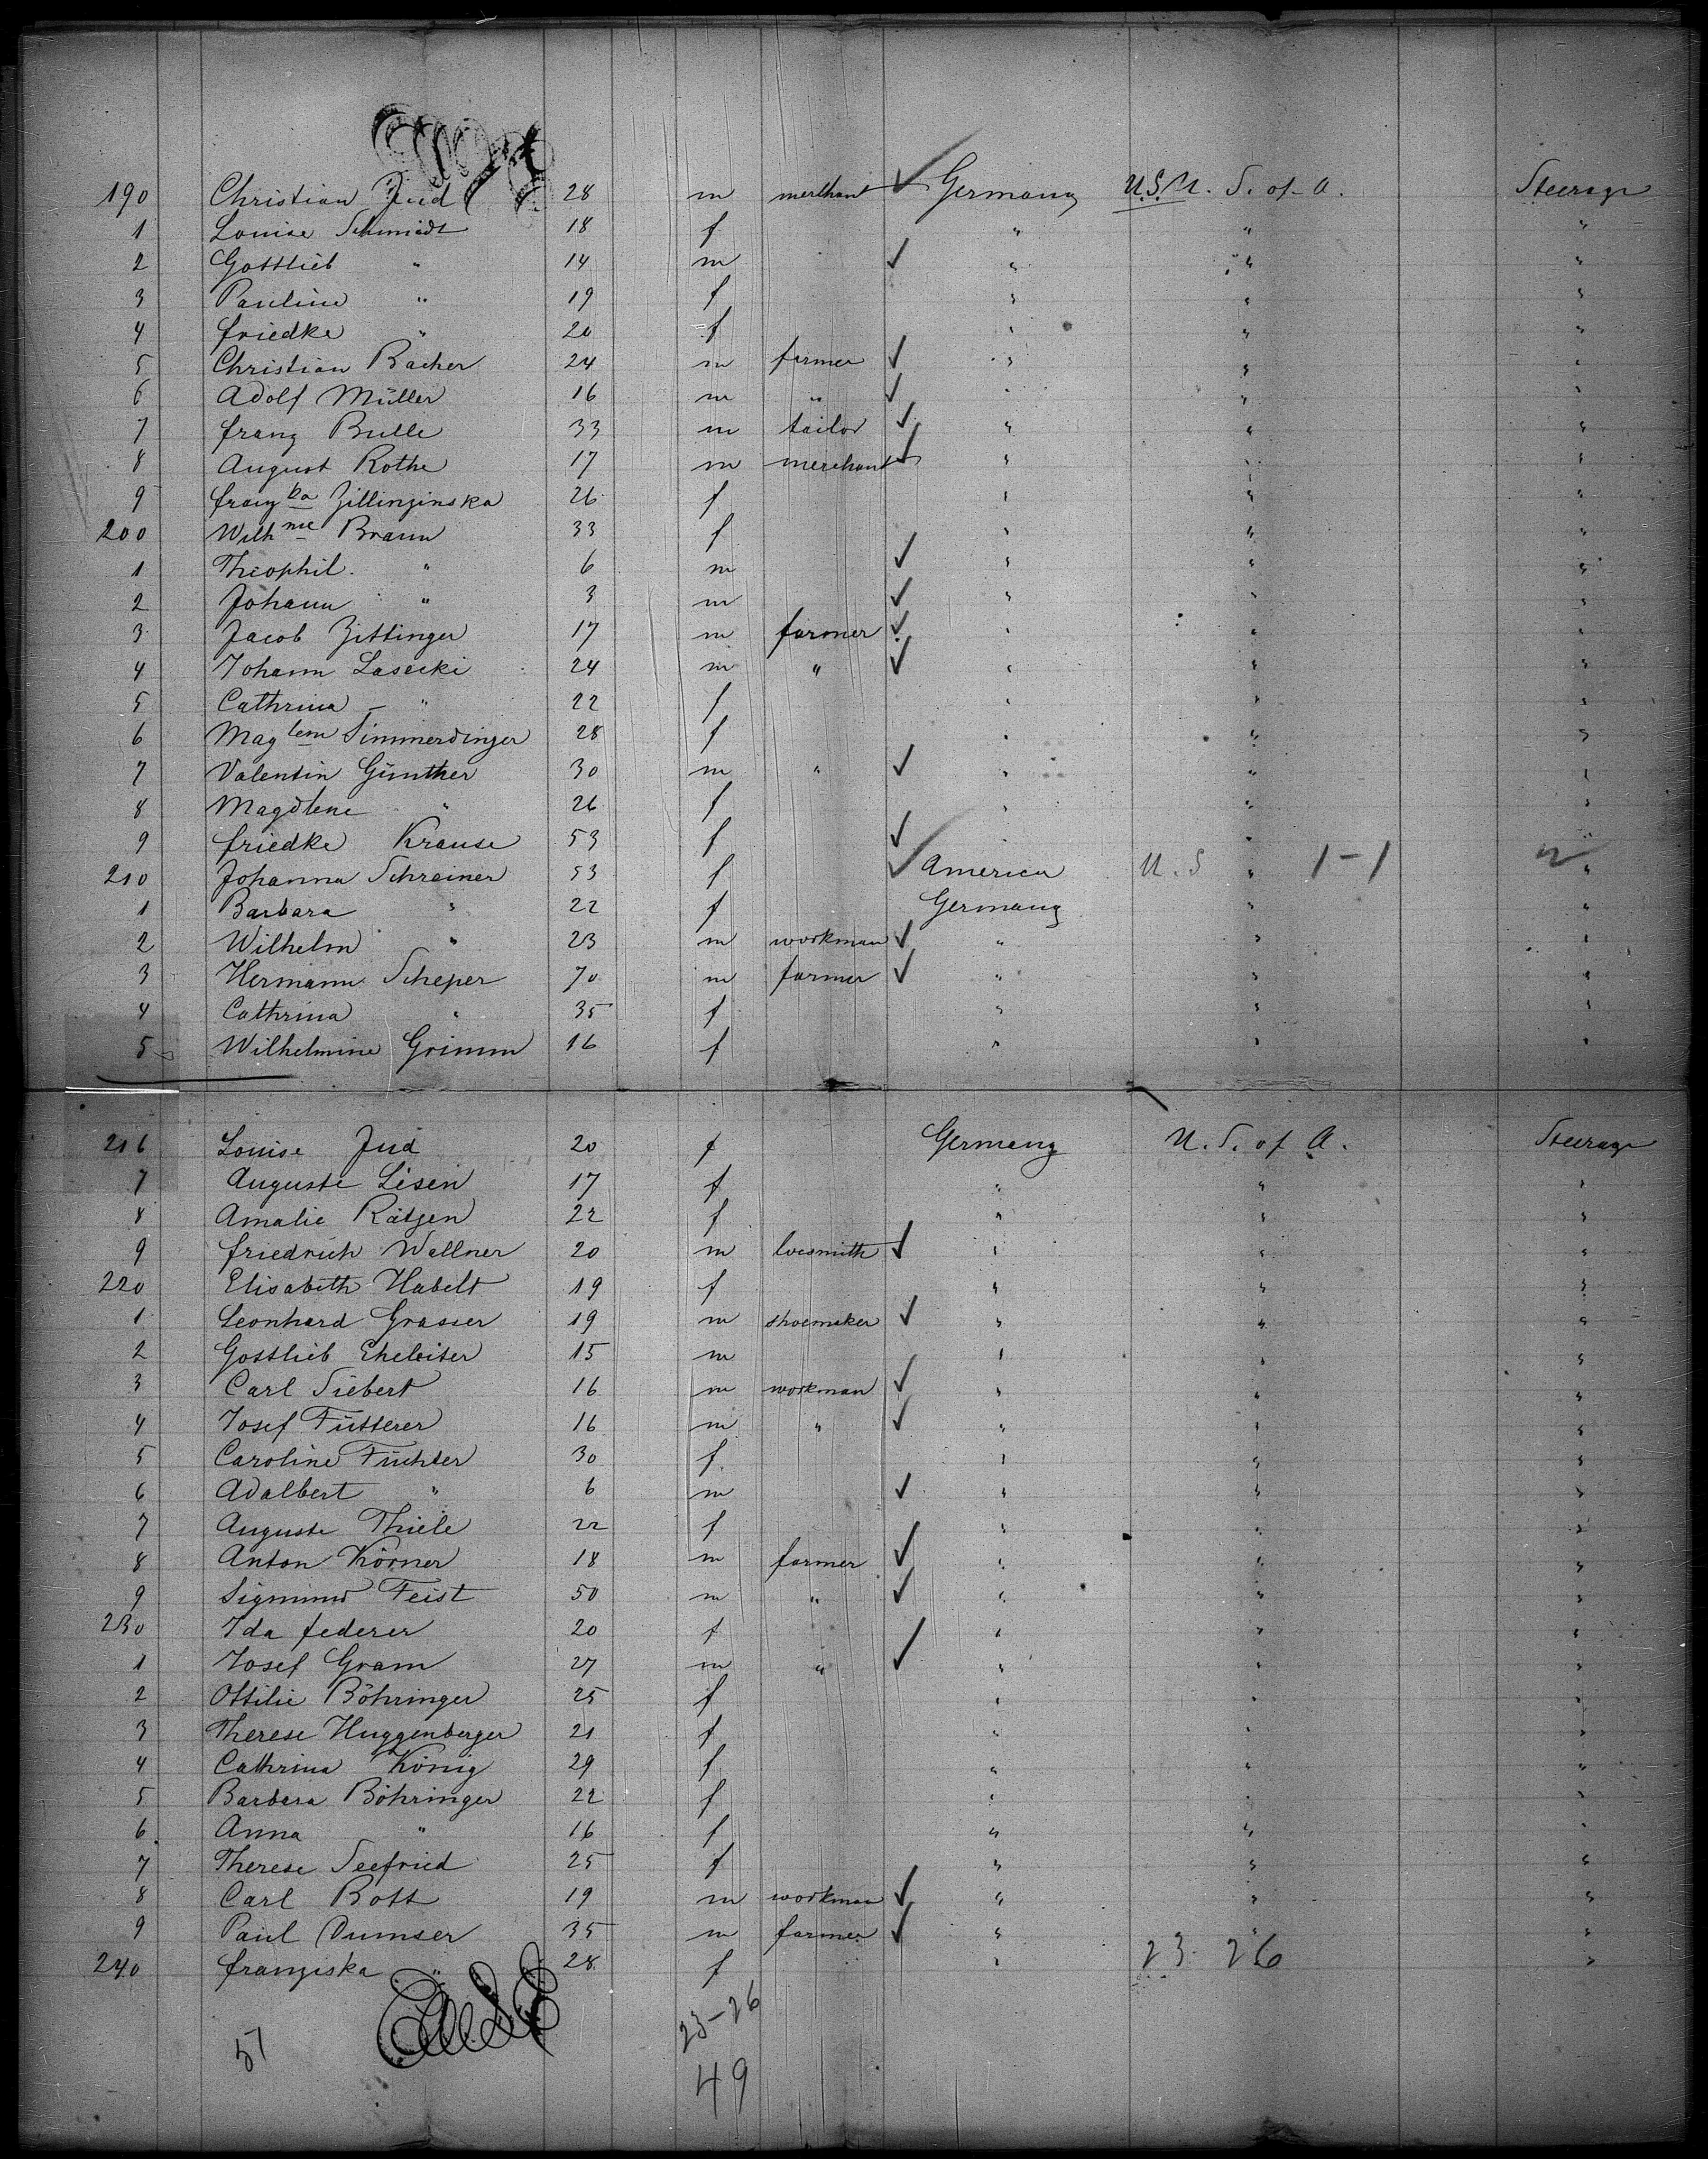 190 Christian Jud 28 m merchant Germany U.S. U. S. of A. Steerage
1 Louise Schmidt 18 f " " "
2 Gottlieb " 14 m " " "
3 Pauline " 19 f " " "
4 Friedke " 20 f " " "
5 Christian Bacher 24 m farmer " " "
6 Adolf Müller 16 m " " " "
7 Franz Bulle 33 m tailor " " "
8 August Rothe 17 m merchant " " "
9 Franz ka Zillinzinska 26 f " " "
200 Wilh me Braun 33 f " " "
1 Theophil " 6 m " " "
2 Johann " 3 m " " "
3 Jacob Zittinger 17 m farmer " " "
4 Johann Lasecki 24 m " " " "
5 Cathrina " 22 f " " "
6 Mag lem Simmerdinger 28 f " " "
7 Valentin Günther 30 m " " " "
8 Magdlene " 26 f " " "
9 Friedke Krause 53 f " " "
210 Johanna Schreiner 53 f America U. S " 1-1 "
1 Barbara " 22 f Germany " "
2 Wilhelm " 23 m workman " " "
3 Hermann Scheper 70 m farmer " " "
4 Cathrina " 35 f " " "
5 Wilhelmine Grimm 16 f " " "
216 Louise Jud 20 f Germany U. S. of A. Steerage
7 Auguste Lisen 17 f " " "
8 Amalie Rätzen 22 f " " "
9 Friedrich Wallner 20 m locsmith " " "
220 Elisabeth Habelt 19 f " " "
1 Leonhard Grasser 19 m shoemaker " " "
2 Gottlieb Eheleiter 15 m " " "
3 Carl Siebert 16 m workman " " "
4 Josef Fütterer 16 m " " " "
5 Caroline Füchter 30 f " " "
6 Adalbert " 6 m " " "
7 Auguste Thiele 22 f " " "
8 Anton Körner 18 m farmer " " "
9 Sigmund Feist 50 m " " " "
230 Ida Federer 20 f " " "
1 Josef Gram 27 m " " " "
2 Ottilie Böhringer 25 f " " "
3 Therese Huggenberger 21 f " " "
4 Cathrina König 29 f " " "
5 Barbara Böhringer 22 f " " "
6 Anna " 16 f " " "
7 Therese Seefried 25 f " " "
8 Carl Bott 19 m workman " " "
9 Paul Dumser 35 m farmer " " "
240 Franziska " 28 f " 23 26 "
23-26
51
49